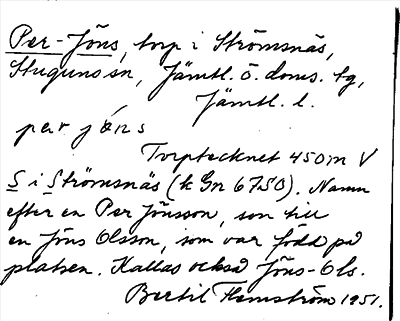 Per-Jöns, torp i Strömsnäs,
Stuguns sn, Jämtl. ö. doms. tg,
Jämtl. l.
per jö́ns
Torptecknet 450 m V
S i Strömsnäs (k Gn 6750). Namn
efter en Per Jönsson, son till
en Jöns Olsson, som var född på
platsen. Kallas också Jöns-Ols.
Bertil Flemström 1951.